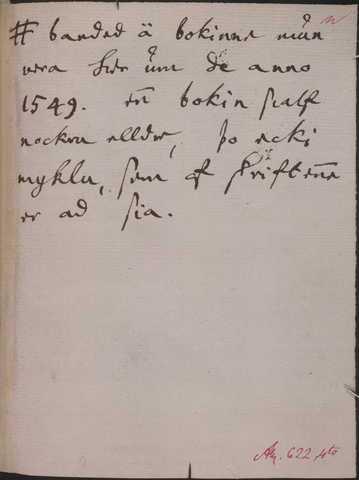 # banded ä bokinne mun
vera hier um de anno
1549. en bokin sialf
nockru elldre, þo ecki
myklu, sem af skriftenne
er ad sia.
AM. 622, 4to